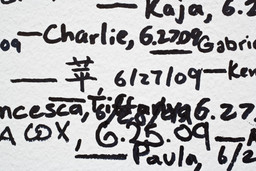 — Kaja, 6.2
09 —Charlie, 6.27.09 Gabri
— 苹, 6/27/09 —Ken
ncesca, 6.27
A COX, 6.25.09 —
— Paula, 6/2